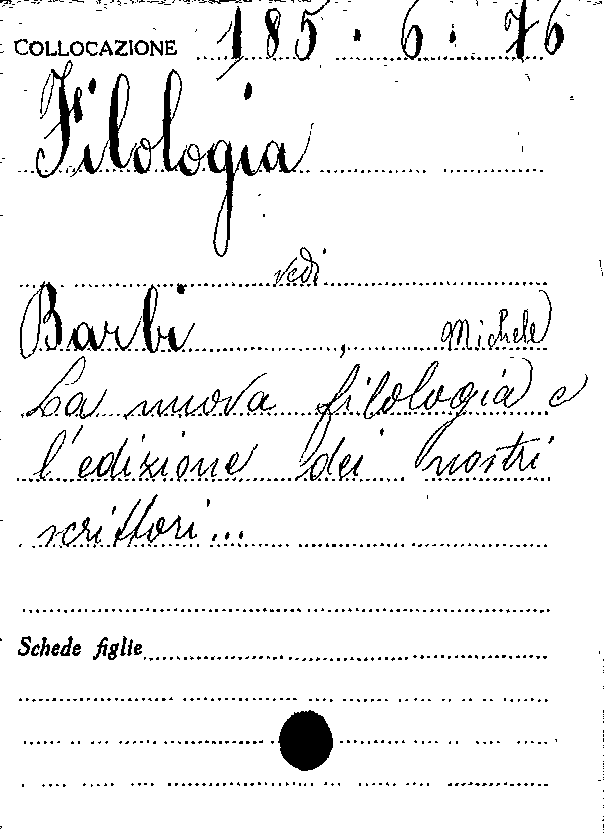 COLLOCAZIONE 185.6.76
Filologia
vedi
Barbi, Michele
La nuova filologia e
l'edizione dei nostri
scrittori...
Schede figlie